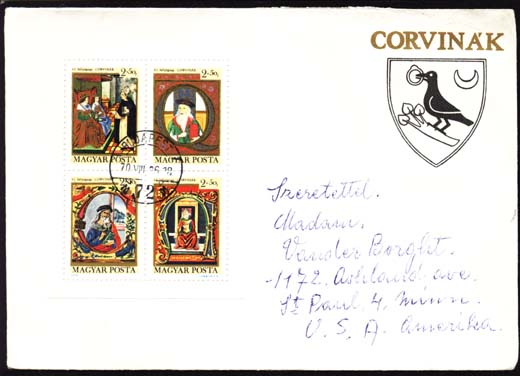 CORVINÁK
2+50f
2+50f
MAGYAR POSTA
MAGYAR POSTA
BUDAPEST
70.VIII.
72
2+50f
2+50f
MAGYAR POSTA
MAGYAR POSTA
Szeretettel.
Madam.
Vander Borght.
1172. Ashland. ave.
St Paul. 4. Minn.
U. S. A. Amerika.